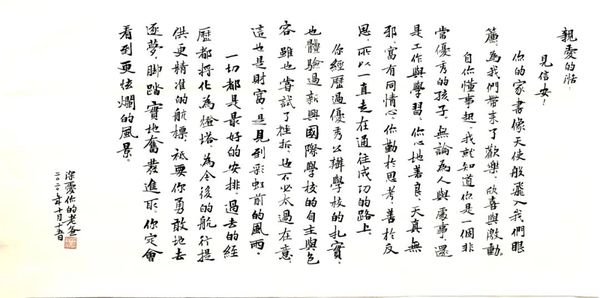 親愛的浩：
見信安！
你的家書像天使般飛入我們眼
簾，為我們帶來了歡樂、欣喜與激動。
自你懂事起，我就知道你是一個非
常優秀的孩子，無論為人與處事，還
是工作與學習。你心地善良，天真無
邪，富有同情心。你勤於思考，善於反
思，所以一直走在通往成功的路上。
你經歷過優秀公辦學校的扎實，
也體驗過新興國際學校的自主與包
容，雖也嘗試了挫折，也不必太過在意，
這也是財富，是見到彩虹前的風雨。
一切都是最好的安排，過去的經
歷都將化為燈塔，為今後的航行提
供更精准的航標，祗要你勇敢地去
逐夢，腳踏實地奮發進取，你定會
看到更炫爛的風景。
深愛你的老爸
二〇二〇年十月